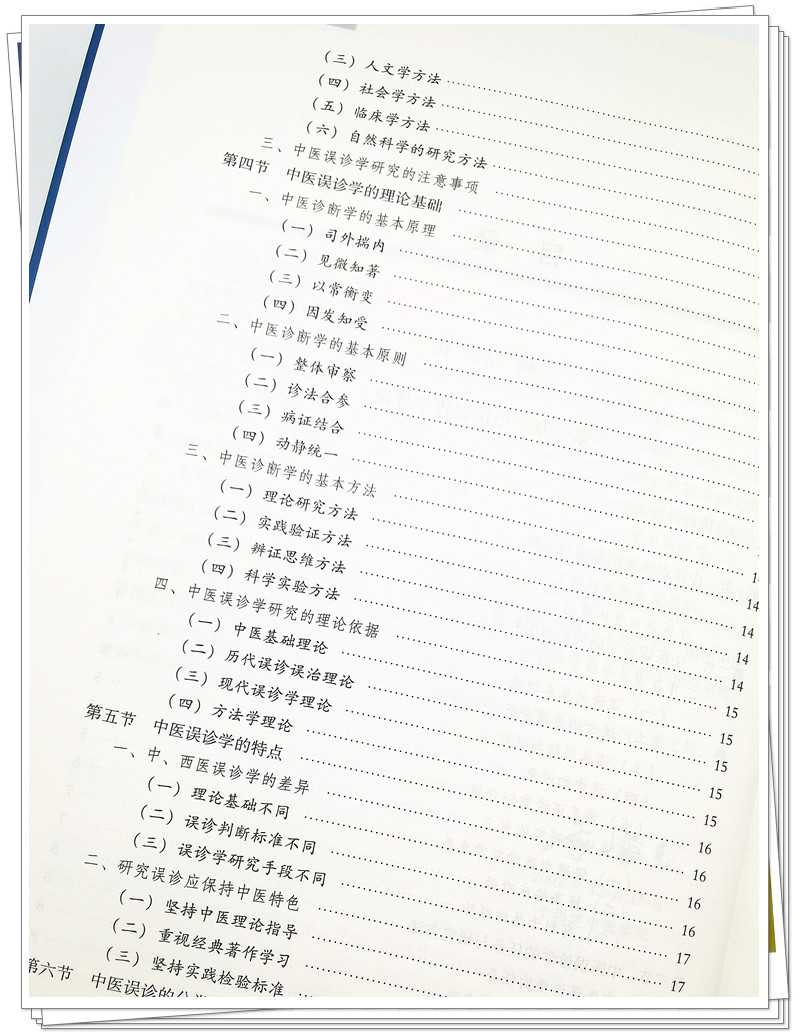 （三）人文学方法 ……
（四）社会学方法 ……
（五）临床学方法 ……
（六）自然科学的研究方法 ……
三、中医误诊学研究的注意事项 ……
第四节 中医误诊学的理论基础 ……
一、中医诊断学的基本原理 ……
（一）司外揣内 ……
（二）见微知著 ……
（三）以常衡变 ……
（四）因发知受 ……
二、中医诊断学的基本原则 ……
（一）整体审察 ……
（二）诊法合参 ……
（三）病证结合 ……
（四）动静统一 ……
三、中医诊断学的基本方法 ……
（一）理论研究方法 ……
（二）实践验证方法 …… 14
（三）辨证思维方法 …… 14
（四）科学实验方法 …… 14
四、中医误诊学研究的理论依据 …… 14
（一）中医基础理论 …… 15
（二）历代误诊误治理论 …… 15
（三）现代误诊学理论 …… 15
（四）方法学理论 …… 15
第五节 中医误诊学的特点 …… 15
一、中、西医误诊学的差异 …… 16
（一）理论基础不同 …… 16
（二）误诊判断标准不同 …… 16
（三）误诊学研究手段不同 …… 16
二、研究误诊应保持中医特色 …… 17
（一）坚持中医理论指导 …… 17
（二）重视经典著作学习 ……
（三）坚持实践检验标准 ……
第六节 中医误诊的分